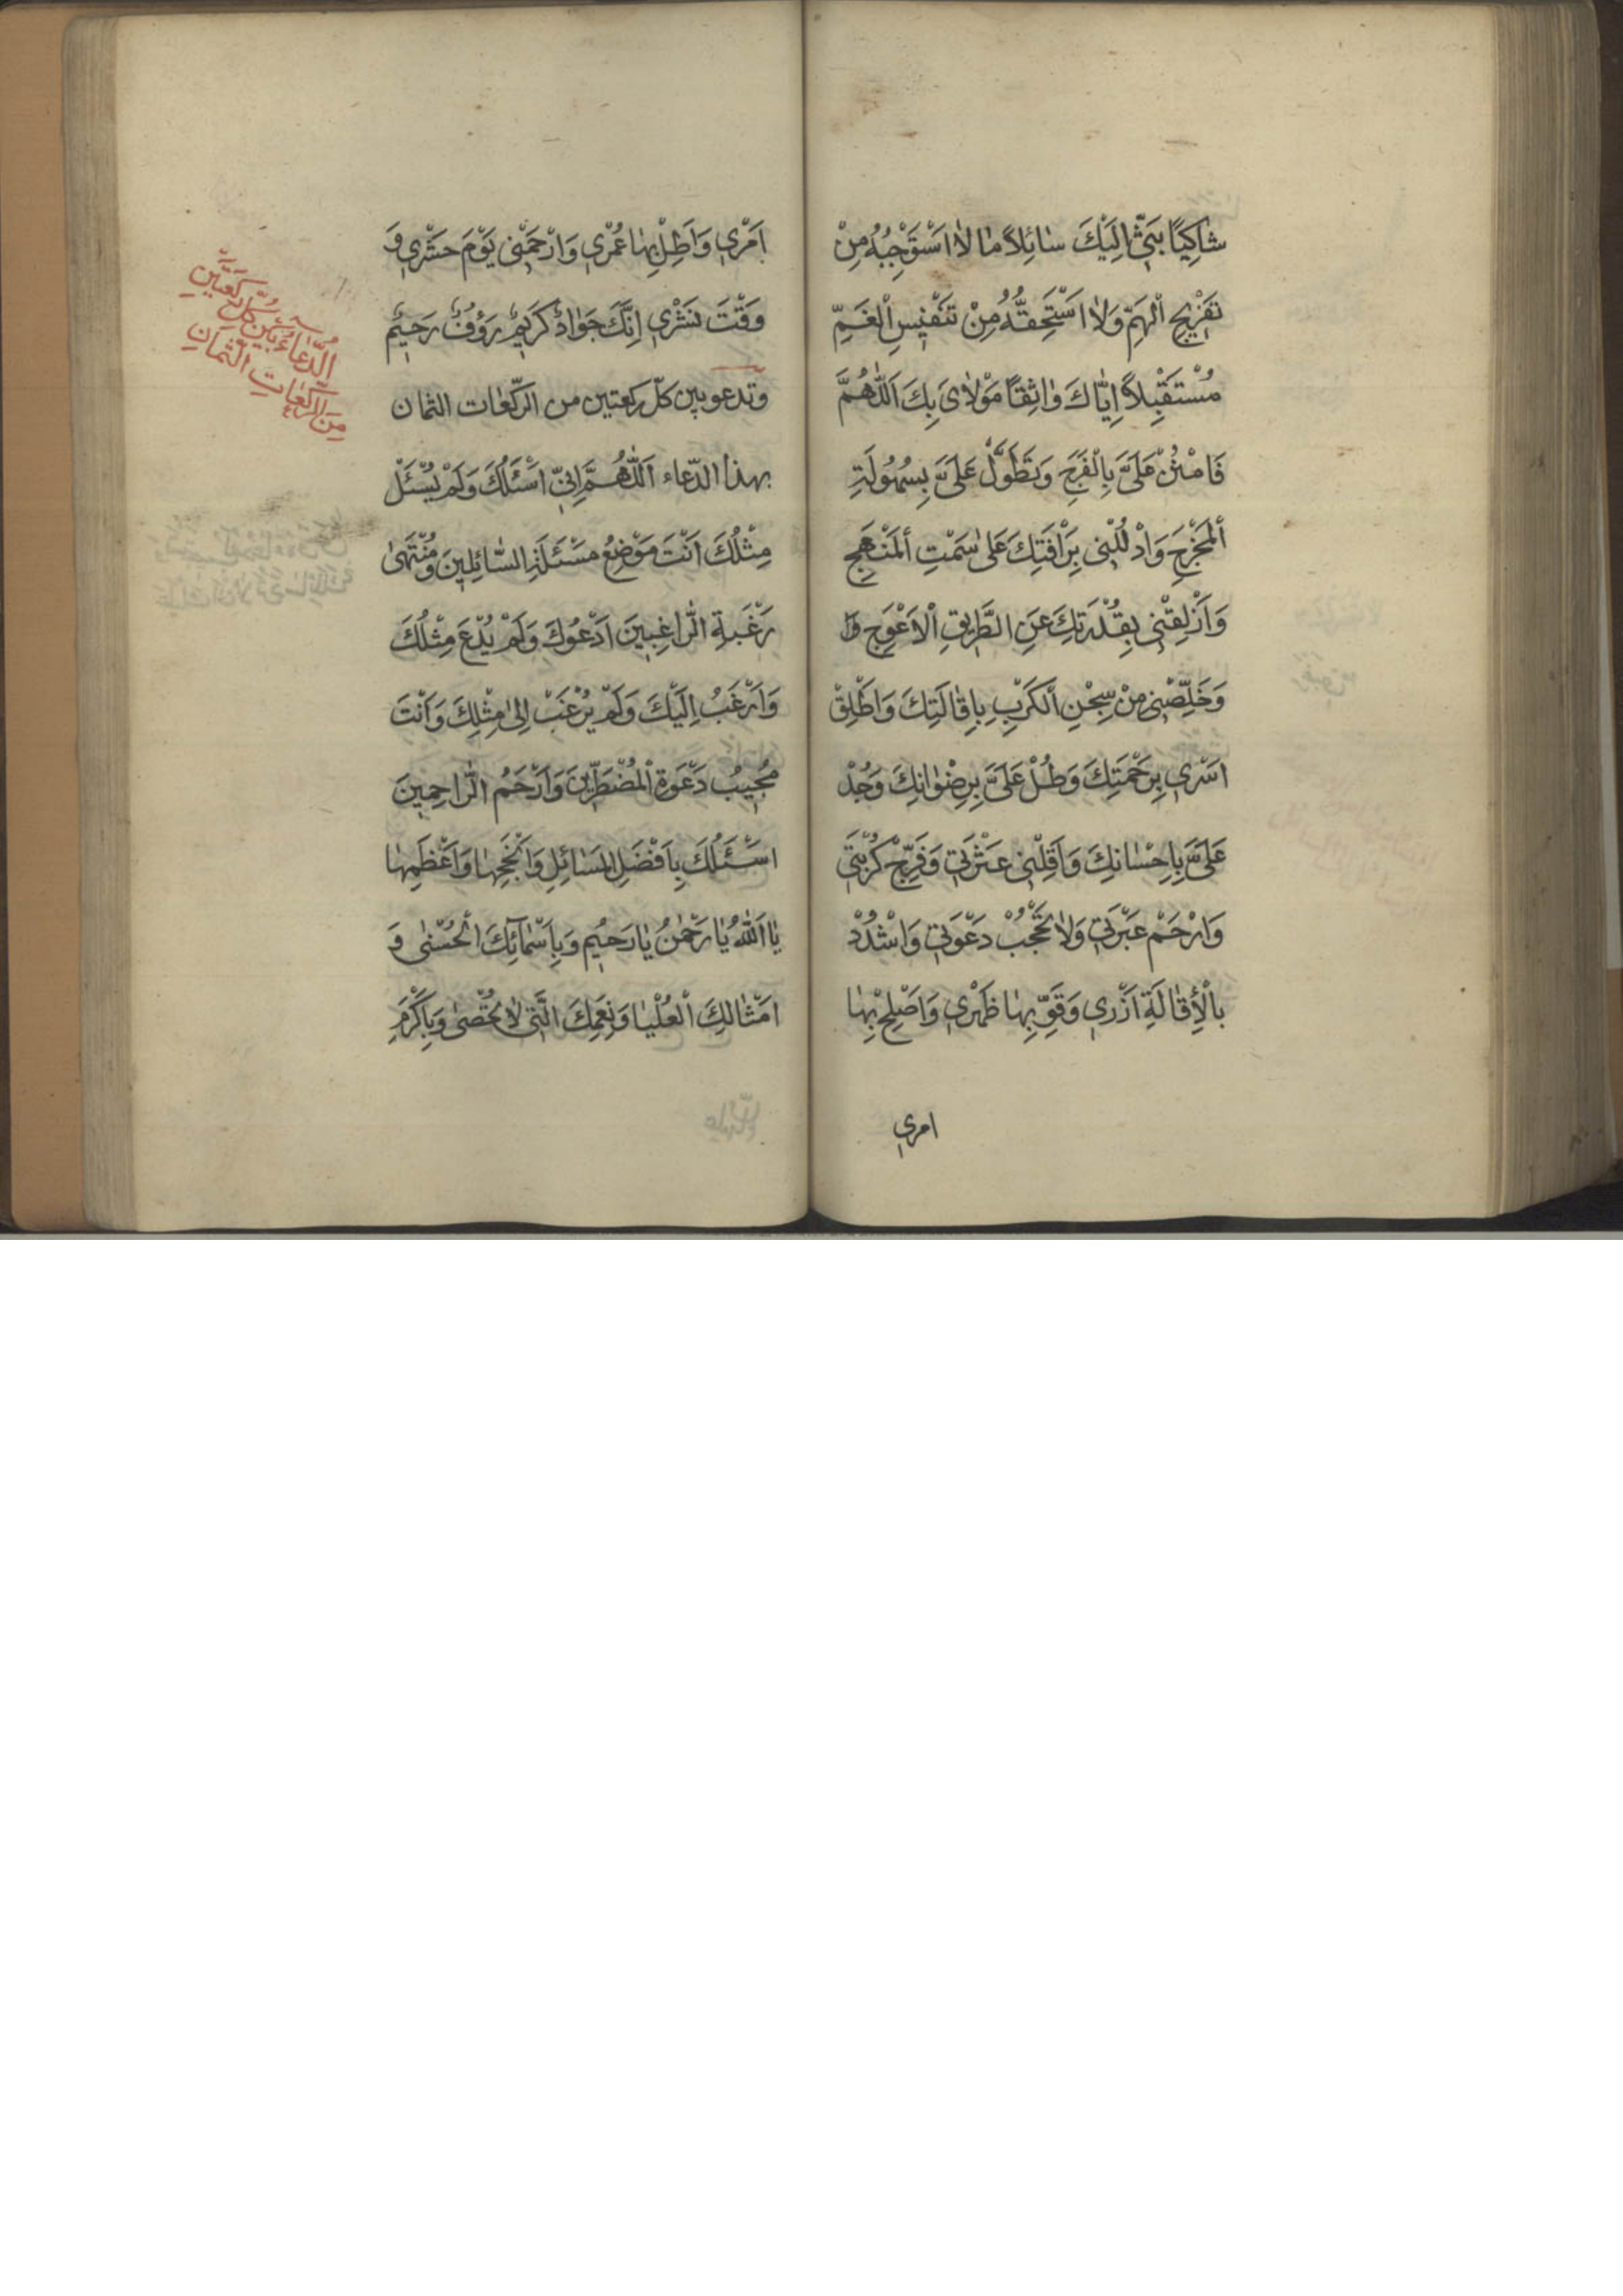 شاكِيًا بَثّي اِلَيْكَ سٰائِلاً مٰا لاٰ اَسْتَوْجِبُهُ مِنْ
تَفْريجِ الْهَمِّ وَلاٰ اَسْتَحِقُّهُ مِنْ تَنْفيسِ الْغَمِّ
مُسْتَقْبِلاً اِيّٰاكَ وٰاثِقًا مَوْلاٰىَ بِكَ اَللّٰهُمَّ
فَامْنُنْ عَلَىَّ بِالْفَرَجِ وَتَطَوَّلْ عَلَىَّ بِسُهُولَةِ
الْمَخْرَجِ وَادْلُلْنى بِرَأْفَتِكَ عَلىٰ سَمْتِ الْمَنْهَجِ
وَاَزْلِقْنى بِقُدْرَتِكَ عَنِ الطَّريقِ الْاَعْوَجِ وَ
وَخَلِّصْنى مِنْ سِجْنِ الْكَرْبِ بِاِقٰالَتِكَ وَاَطْلِقْ
اَسْرى بِرَحْمَتِكَ وَطُلْ عَلَىَّ بِرِضْوٰانِكَ وَجُدْ
عَلَىَّ بِاِحْسٰانِكَ وَاَقِلْنى عَثْرَتى وَفَرِّجْ كُرْبَتى
وَارْحَمْ عَبْرَتى وَلاٰ تَحْجُبْ دَعْوَتى وَاشْدُدْ
بِالْأِقٰالَةِ اَزْرى وَقَوِّ بِهٰا ظَهْرى وَاَصْلِحْ بِهٰا
امرى
اَمْرى وَاَطِلْ بِهٰا عُمْرى وَارْحَمْنى يَوْمَ حَشْرى وَ
وَقْتَ نَشْرى اِنَّكَ جَوٰادٌ كَريمٌ رَؤُفٌ رَحيمٌ
وتدعو بين كلّ ركعتين من الركّعات الثمان
بهذا الدّعاء اَللّٰهُمَّ اِنّى اَسْئَلُكَ وَلَمْ يُسْئَلْ
مِثْلُكَ اَنْتَ مَوْضِعُ مَسْئَلَةِ السّٰائِلينَ وَمُنْتَهىٰ
رَغْبَةِ الرّٰاغِبينَ اَدْعُوكَ وَلَمْ يُدْعَ مِثْلُكَ
وَاَرْغَبُ اِلَيْكَ وَلَمْ يُرْغَبْ اِلىٰ مِثْلِكَ وَاَنْتَ
مُجيبُ دَعْوَةِ الْمُضْطَرّينَ وَاَرْحَمُ الرّٰاحِمينَ
اَسْئَلُكَ بِاَفْضَلِ الْمَسٰائِلِ وَاَنْجَحِهٰا وَاَعْظَمِهٰا
يٰا اَللّٰهُ يٰا رَحْمٰنُ يٰا رَحيمُ وَبِاَسْمٰآئِكَ الْحُسْنٰى وَ
اَمْثٰالِكَ الْعُلْيٰا وَنِعَمِكَ الَّتى لاٰ تُحْصىٰ وَبِاَكْرَمِ
الدُّعٰآءُ بَيْنَ كُلِّ رَكْعَتَيْنِ
مِنَ الرَّكَعٰاتِ الثَّمٰانِ